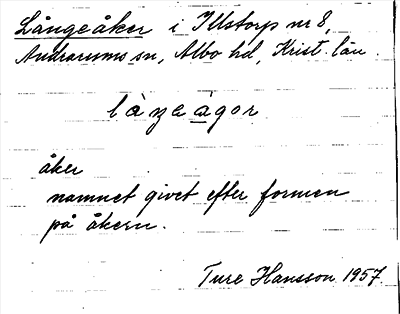 Långeåker i Illstorp nr 8,
Andrarums sn, Albo hd, Krist. län.
låŋeågor
åker
namnet givet efter formen
på åkern.
Ture Hansson 1957.